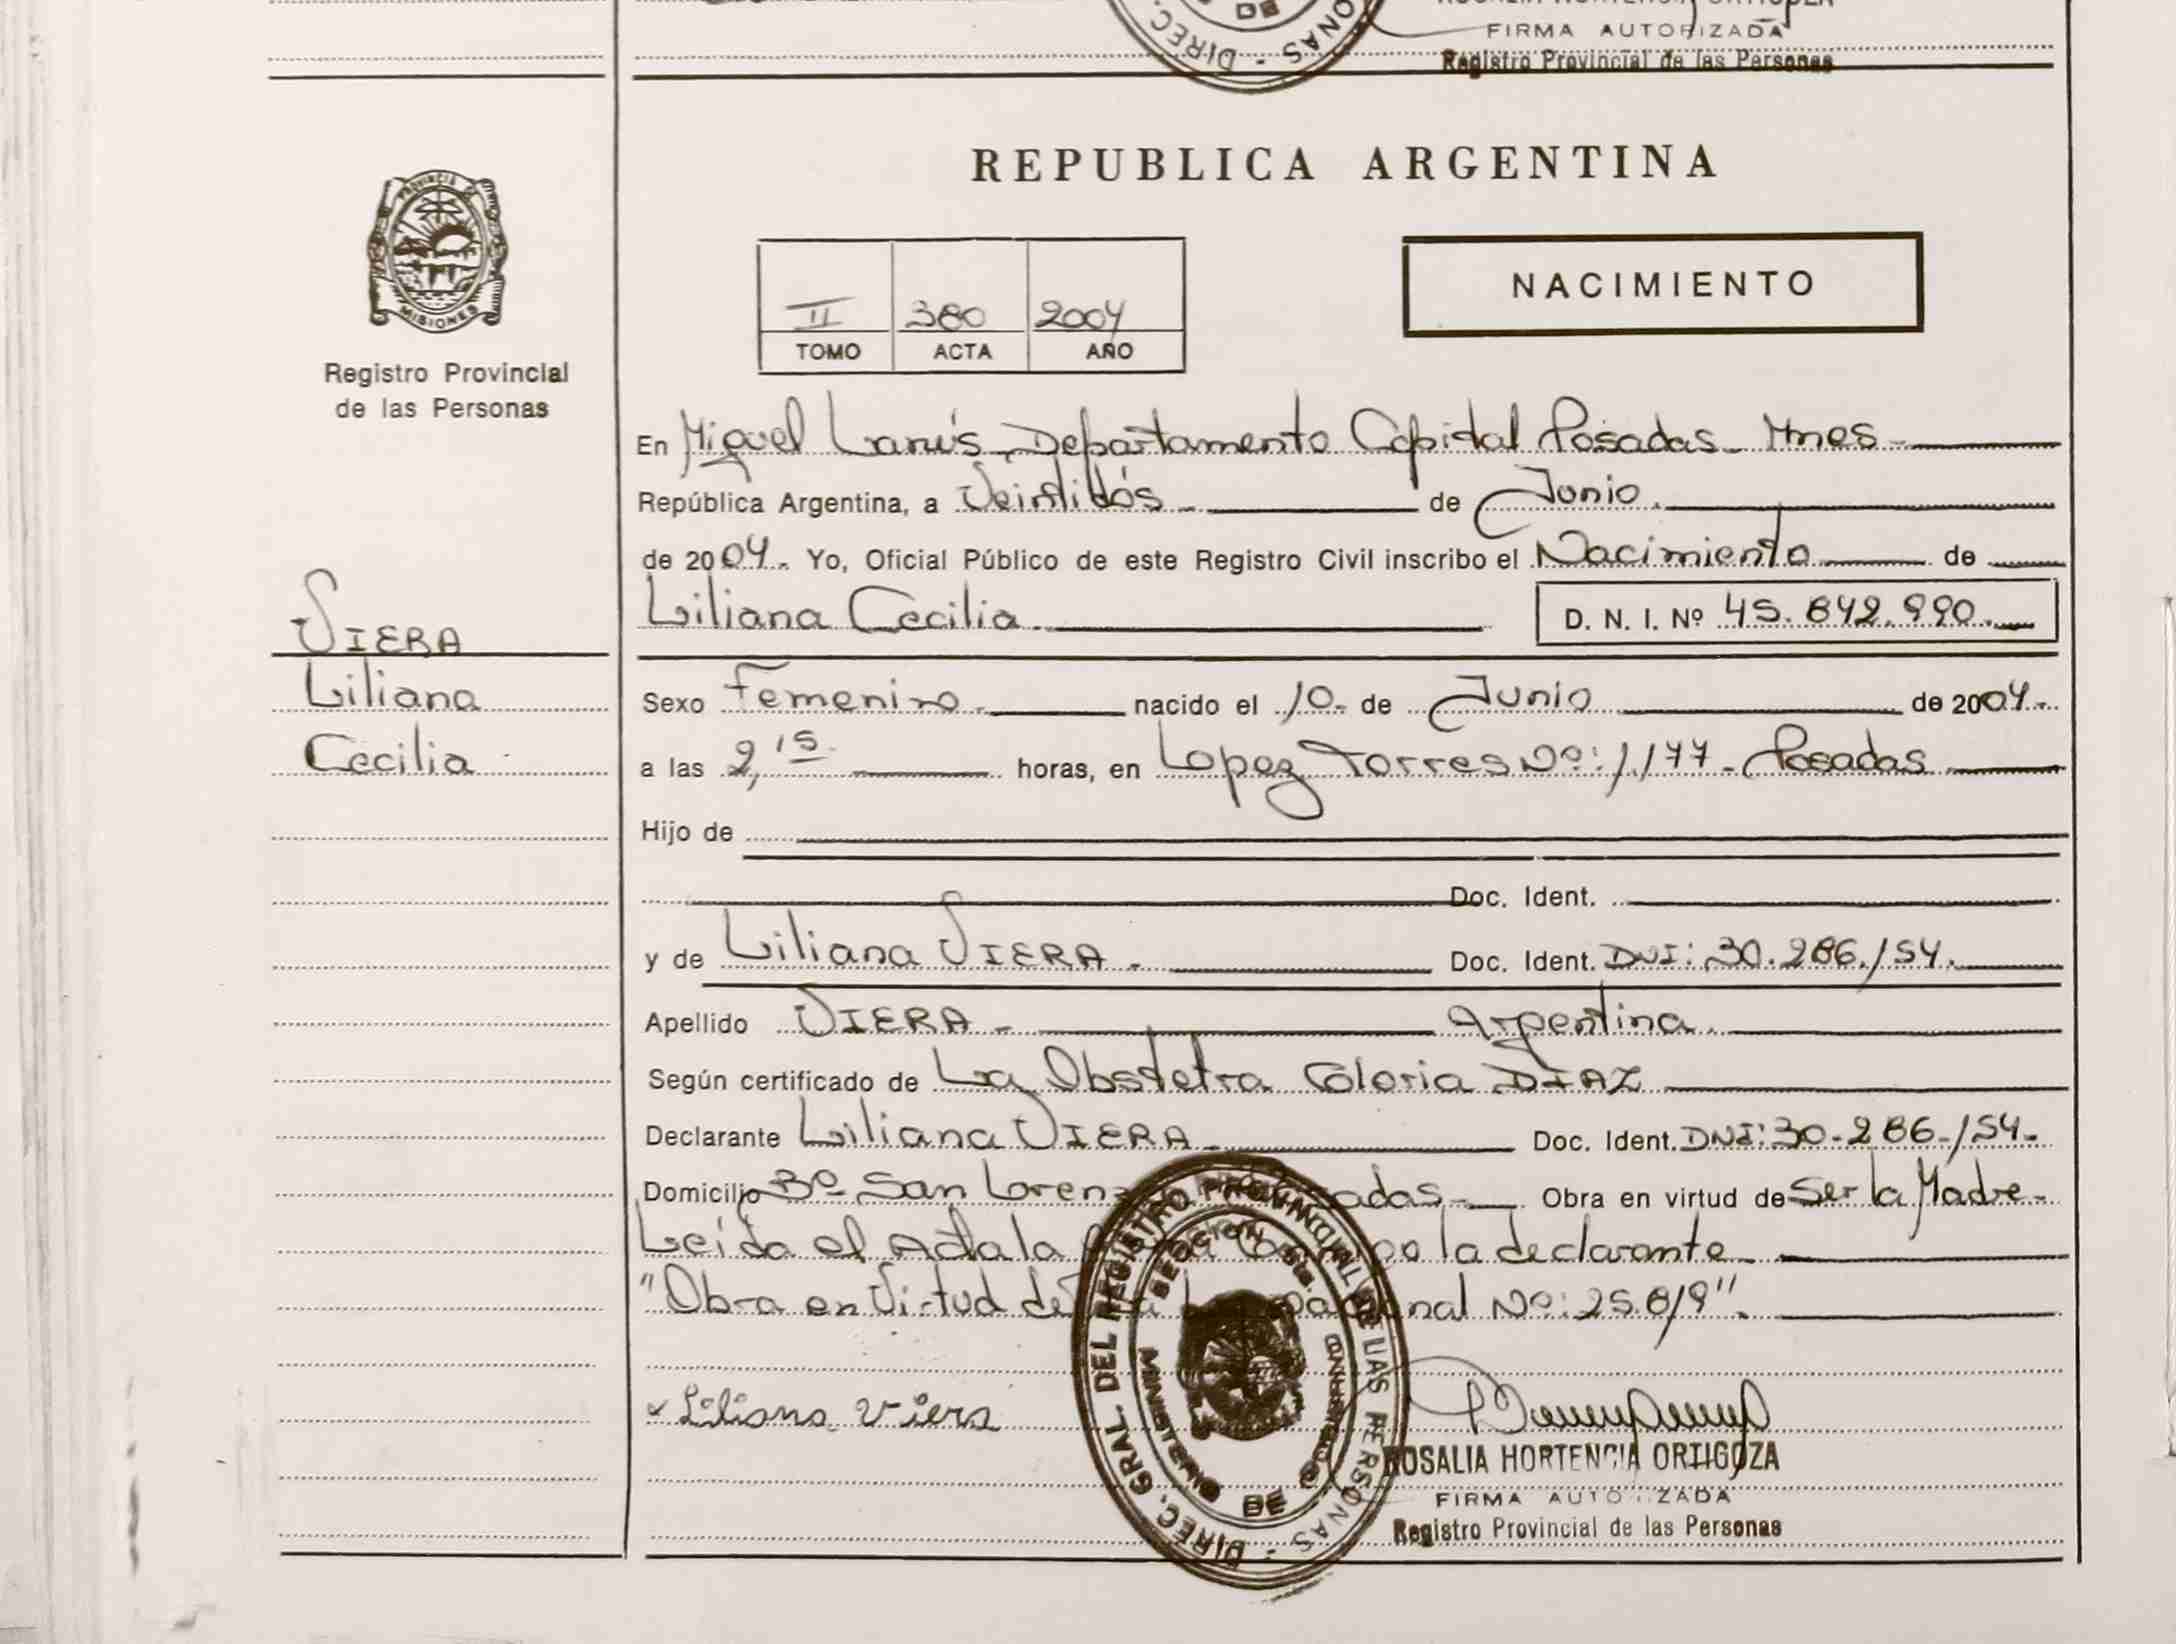 DE
DIREC. ONAS
FIRMA AUTORIZADA
Registro Provincial de las Personas
REPUBLICA ARGENTINA
PROVINCIA DE
MISIONES
Registro Provincial
de las Personas
NACIMIENTO
II 380 2004
TOMO ACTA AÑO
En Miguel Lanús Departamento Capital Posadas Mnes
República Argentina, a Veintidós de Junio
de 2004. Yo, Oficial Público de este Registro Civil inscribo el Nacimiento de
Liliana Cecilia D. N. I. Nº 45.842.990.
VIERA
Liliana
Cecilia
Sexo Femenino nacido el 10 de Junio de 2004.
a las 2,15 horas, en Lopez Torres Nº: 1.177 - Posadas
Hijo de
Doc. Ident.
y de Liliana VIERA. Doc. Ident. DNI: 30.286.154.
Apellido VIERA Argentina.
Según certificado de La Obstetra Gloria DIAZ
Declarante Liliana VIERA Doc. Ident. DNI: 30.286.154.
Domicilio Bº San Lorenz adas Obra en virtud de Ser la Madre
Leída el Acta la la declarante
"Obra en Virtud de nal Nº: 25.819".
Liliana Viera
DIREC. GRAL. DEL REGISTRO PROVINCIAL DE LAS PERSONAS
MINISTERIO DE GOBIERNO
ROSALIA HORTENCIA ORTIGOZA
FIRMA AUTORIZADA
Registro Provincial de las Personas